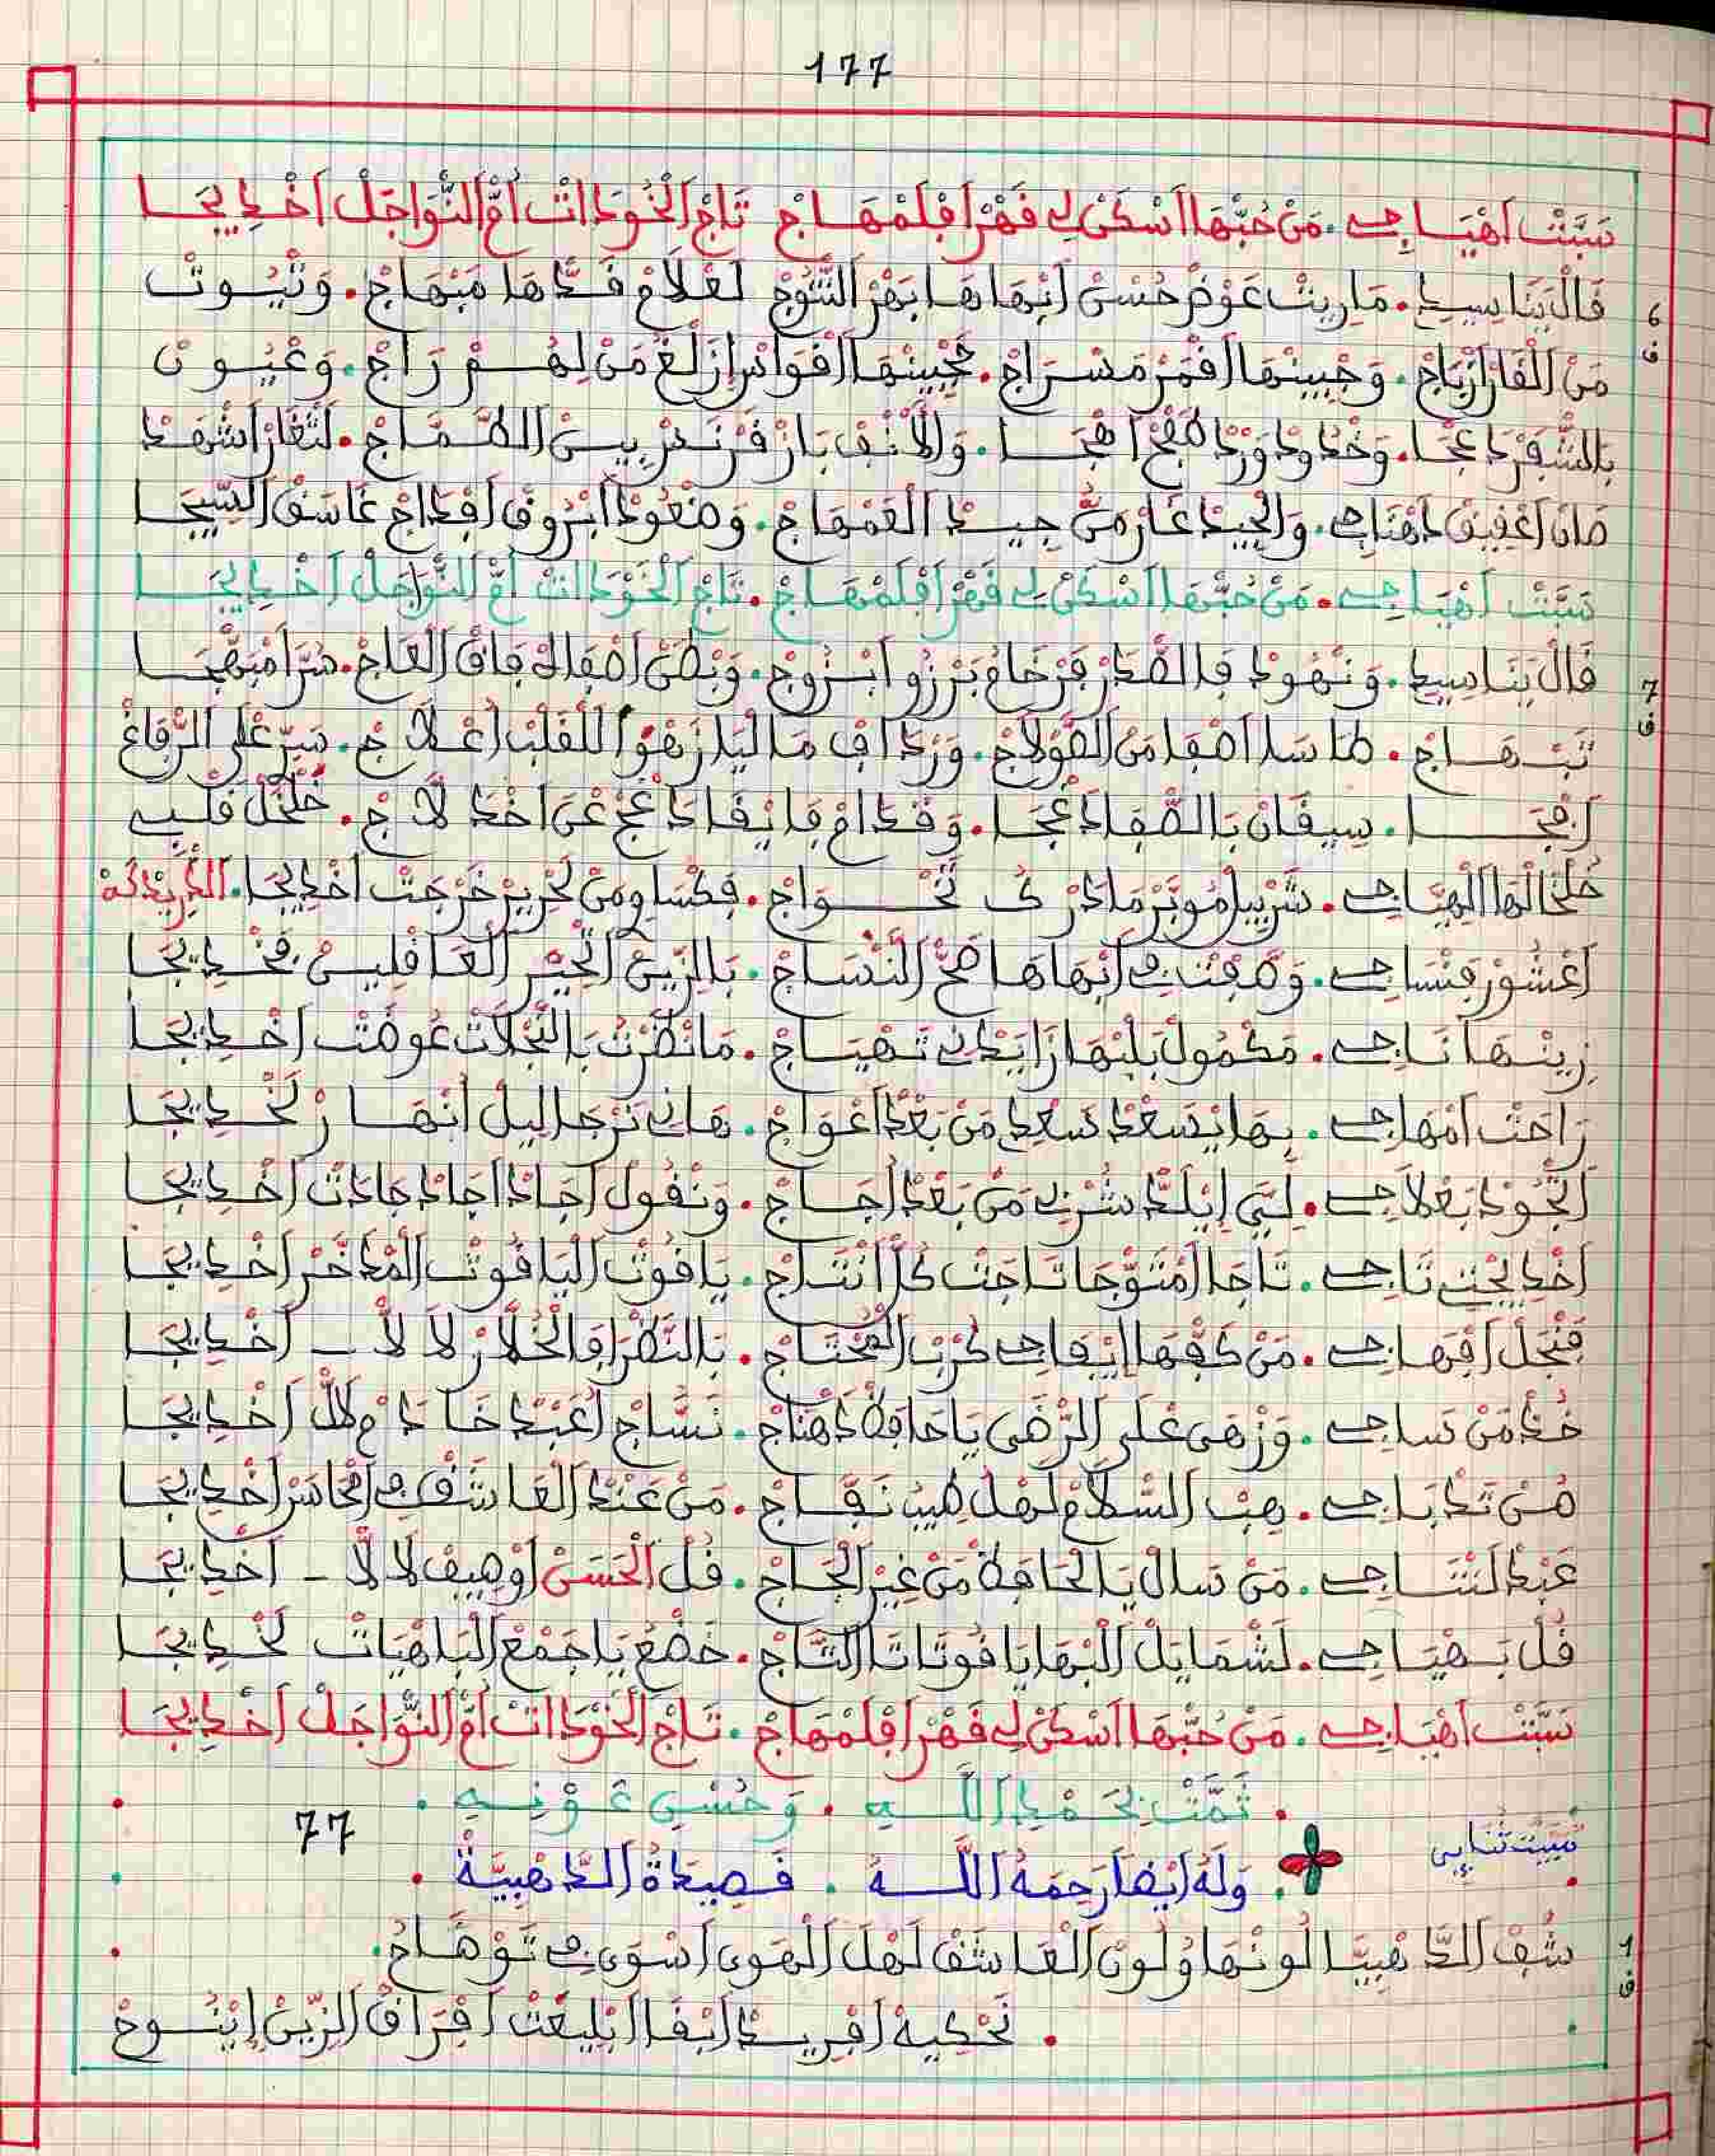 177
سَبَّتْ اَهْيَاجِي . مَنْ حُبّْهَا اَسْكَنْ لِي فَهْرْ اَفْلَمْهَاجْ تَاجْ الْخُوذَاتْ اُمّْ النّْوَاجَلْ اَخْدِيجَا
6 ف
قَالْ يَنَا سِيدِي . مَا رِيتْ عَوْضْ حُسْنْ اَبْهَاهَا بَهْرْ التّْتُوجْ لَعْلَامْ قَدّْهَا مَبْهَاجْ . وَتْيُوتْ
مَنْ الْقَارْ اَزْيَاجْ . وَجْبِينْهَا اَقْمَرْ مَسْرَاجْ . حَجْبِينْهَا اَقْوَاسْ اَزْلَغْ مَنْ لِهُمْ رَاجْ . وَعْيُونْ
بِالشّْفَرْ دَعْجَا . وَخْدُودْ وَرْدْ طَفْحْ اَهْجَا . وَالْاَنْفْ بَازْ قَرْنَصْ بِيسْنْ الطَّمَّاجْ . لَثْغَرْ اَشْهَدْ
صَانْ اَعْقِيقْ دَهْنَاجِي . وَالْجِيدْ غَازْ مَنّْ جِيدْ الْعَمْهَاجْ . وَضْعُودْ اَبْرُوقْ اَفْدَاجْ غَاسَقْ السِّيجَا
سَبَّتْ اَهْيَاجِي . مَنْ حُبّْهَا اَسْكَنْ لِي فَهْرْ اَفْلَمْهَاجْ . تَاجْ الْخُوذَاتْ اُمّْ النّْوَاجَلْ اَخْدِيجَا
7 ف
قَالْ يَنَا سِيدِي . وَنْهُودْ فَالصّْدَرْ فَرْخَامْ بَرْزُو اَبْزُوجْ . وَبْطَنْ اَصْقَالْ فَاقْ الْعَاجْ . سُرَّا مْبَهّْجَا
تَبْهَاجْ . طَاسَا اَصْفَا مَنْ الصُّولَاجْ . وَرْدَافْ مَالْيَا زَهْوْ اللْقَلْبْ اَعْلَاجْ . سَرّْ عْلَى الرّْفَاغْ
اَفْجَا . سِيقَانْ بَالصّْفَا دَعْجَا . وَقْدَامْ فَايْقَا دَعْجْ عْنْ اَخْدْ لَاجْ . خَلْخَلْ قَلْبِي
خَلْخَالْهَا الْهِيَّاجِي . شَرْبِيلْ مُوبَرْ مَا دْرَكْ تَحْوَاجْ . فَكْسَاوِي مَنْ لَحْرِيرْ خَرْجَتْ اَخْدِيجَا . الدّْرِيدْكَةْ
اَعْشُورْ فَنْسَاجِي . وَصْفْتْ فِي اَبْهَاهَا صَحّْ النَّسَّاجْ . بَالزِّينْ الْحِيِّرْ الْعَاقْلِينْ فَخْدِيجَا
زِينْهَا نَاجِي . مَكْمُولْ بَلْبْهَا زَايَدْنِي تَهْيَاجْ . مَا نَظْرَتْ بَالنّْجْلَاتْ عُوضَتْ اَخْدِيجَا
رَاحَتْ اَمْهَاجِي . بِهَا يَصْعَدْ سَعْدِي مَنْ بَعْدْ اَعْوَاجْ . هَانِي نَرْجَا لِيلْ اَنْهَارْ لَخْدِيجَا
اَتْجُودْ بَعْلَاجِي . لَبِّي اِيْلَدّْ شَرْبِي مَنْ بَعْدْ اُجَاجْ . وَنْقُولْ اَجَادْ اَجَادْ جَادَتْ اَخْدِيجَا
اَخْدِيجْتِي تَاجِي . تَاجَا اَمْتَوّْجَا تَاجَتْ كُلّْ اَنْتَاجْ . يَاقُوتْ الْيَاقُوتْ الْمْدَخَّرْ اَخْدِيجَا
فَنْجَلْ اَفْهَاجِي . مَنْ كَفّْهَا اِيفَاجِي كَرْبْ الْمُحْتَاجْ . بَالنّْظَرْ اَفَالْخُلَّازْ لَا لَا ـ اَخْدِيجَا
خُدْ مَنْ نْسَاجِي . وَزْهَى عْلَى الرّْضَى يَا حَافَظْ دَهْنَاجْ . نَسَّاجْ اَعْبَدْ خَادَمْ لَالّْ اَخْدِيجَا
حُسْنْ تَدْبَاجِي . هِبْ السّْلَامْ لَهْلْ طِيبْ نَفَّاجْ . مَنْ عَنْدْ الْعَاشَقْ فِي اَمْحَاسَنْ اَخْدِيجَا
عَبْدْ لَنْتَاجِي . مَنْ سَالْ يَا الْحَافَظْ مَنْ غِيرْ اَلْحَاجْ . قُلْ اَلْحَسَنْ اَوْصِيفْ لَا لَّا ـ اَخْدِيجَا
قُلْ بَهْيَاجِي . لَشْمَايَلْ الْبْهَا يَا قُوتَاتْ التَّاجْ . خَضْعْ يَا جَمْعْ الْبَاهْيَاتْ لَخْدِيجَا
سَبَّتْ اَهْيَاجِي . مَنْ حُبّْهَا اَسْكَنْ لِي فَهْرْ اَفْلَمْهَاجْ . تَاجْ الْخُوذَاتْ اُمّْ النّْوَاجَلْ اَخْدِيجَا
. تَمَّتْ بِحَمْدِ اللَّهِ . وَحُسْنِ عَوْنِهِ .
77
. وَلَهُ اَيْضاً رَحِمَهُ اللَّهُ . قَصِيدَةُ الذَّهْبِيَّةْ .
مْبَيَّتْ ثْنَايِي
1 ف
شُفْ الدّْهْبِيَّا لُونْهَا وْلُونْ الْعَاشَقْ لَهْلْ الْهَوَى اَسْوَى فِي تَوْهَاجُ .
. نَحْكِيهْ اَفْرِيدْ اَبْقَا اَبْلِيعَتْ اَفْرَاقْ الزِّينْ اِيْنُوحْ